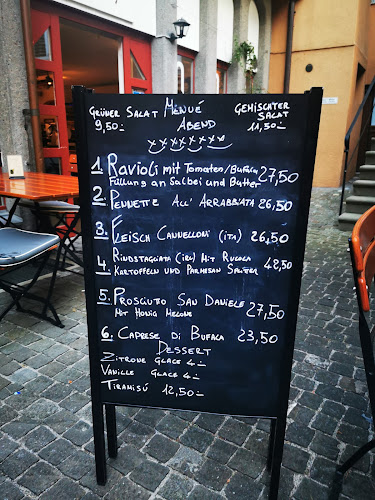 GRÜNER SALAT
9,50.-
MENUÉ
ABEND
GEMISCHTER
SALAT
11,50.-
xxxxxxxx
1. RAVIOLI MIT TOMATEN/BUFALA
FÜLLUNG AN SALBEI UND BUTTER 27,50
2. PENNETTE ALL' ARRABBIATA 26,50
3. FLEISCH CANNELLONI (ITA) 26,50
4. RINDSTAGLIATA (IRL) MIT RUCOLA
KARTOFFELN UND PARMESAN SPLITTER 42,50
5. PROSCIUTO SAN DANIELE
MIT HONIG MELONE 27,50
6. CAPRESE DI BUFALA 23,50
DESSERT
ZITRONE GLACE 4.-
VANILLE GLACE 4.-
TIRAMISÚ 12,50.-